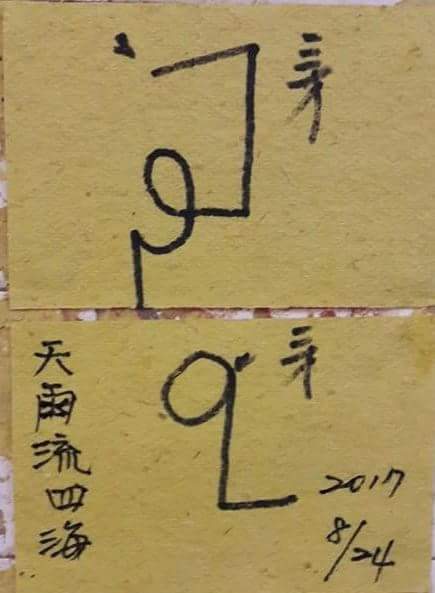 天雨流四海
2017
8/24